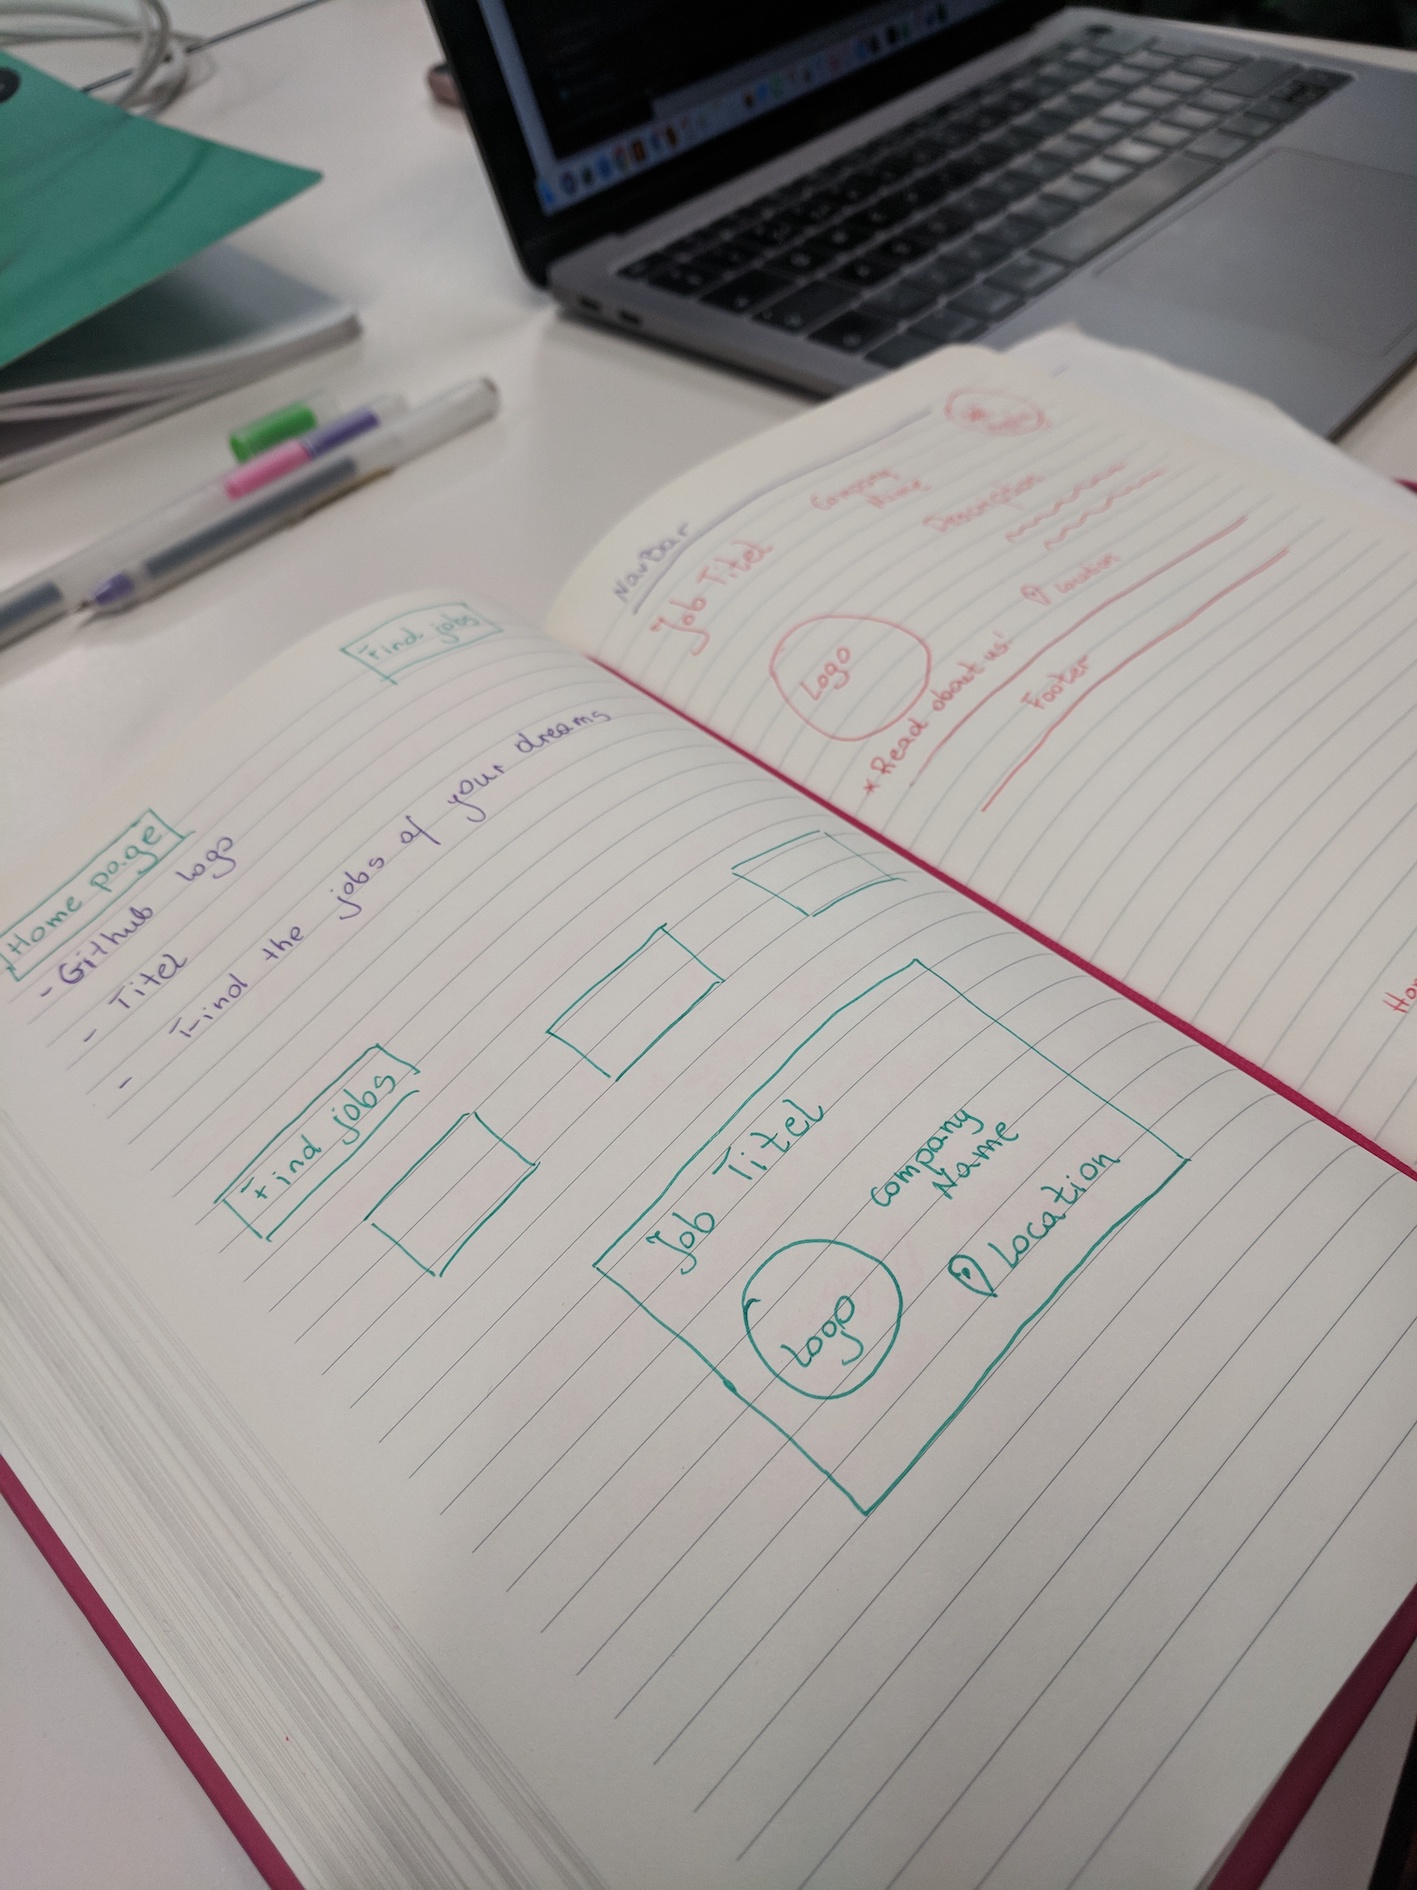 Home page
Find jobs
- Github logo
- Titel
- Find the jobs of your dreams
Find jobs
Job Titel
Company
Name
Logo
Location
NavBar
Job Titel
Company
Name
Description
Logo
Location
*Read about us!
Footer